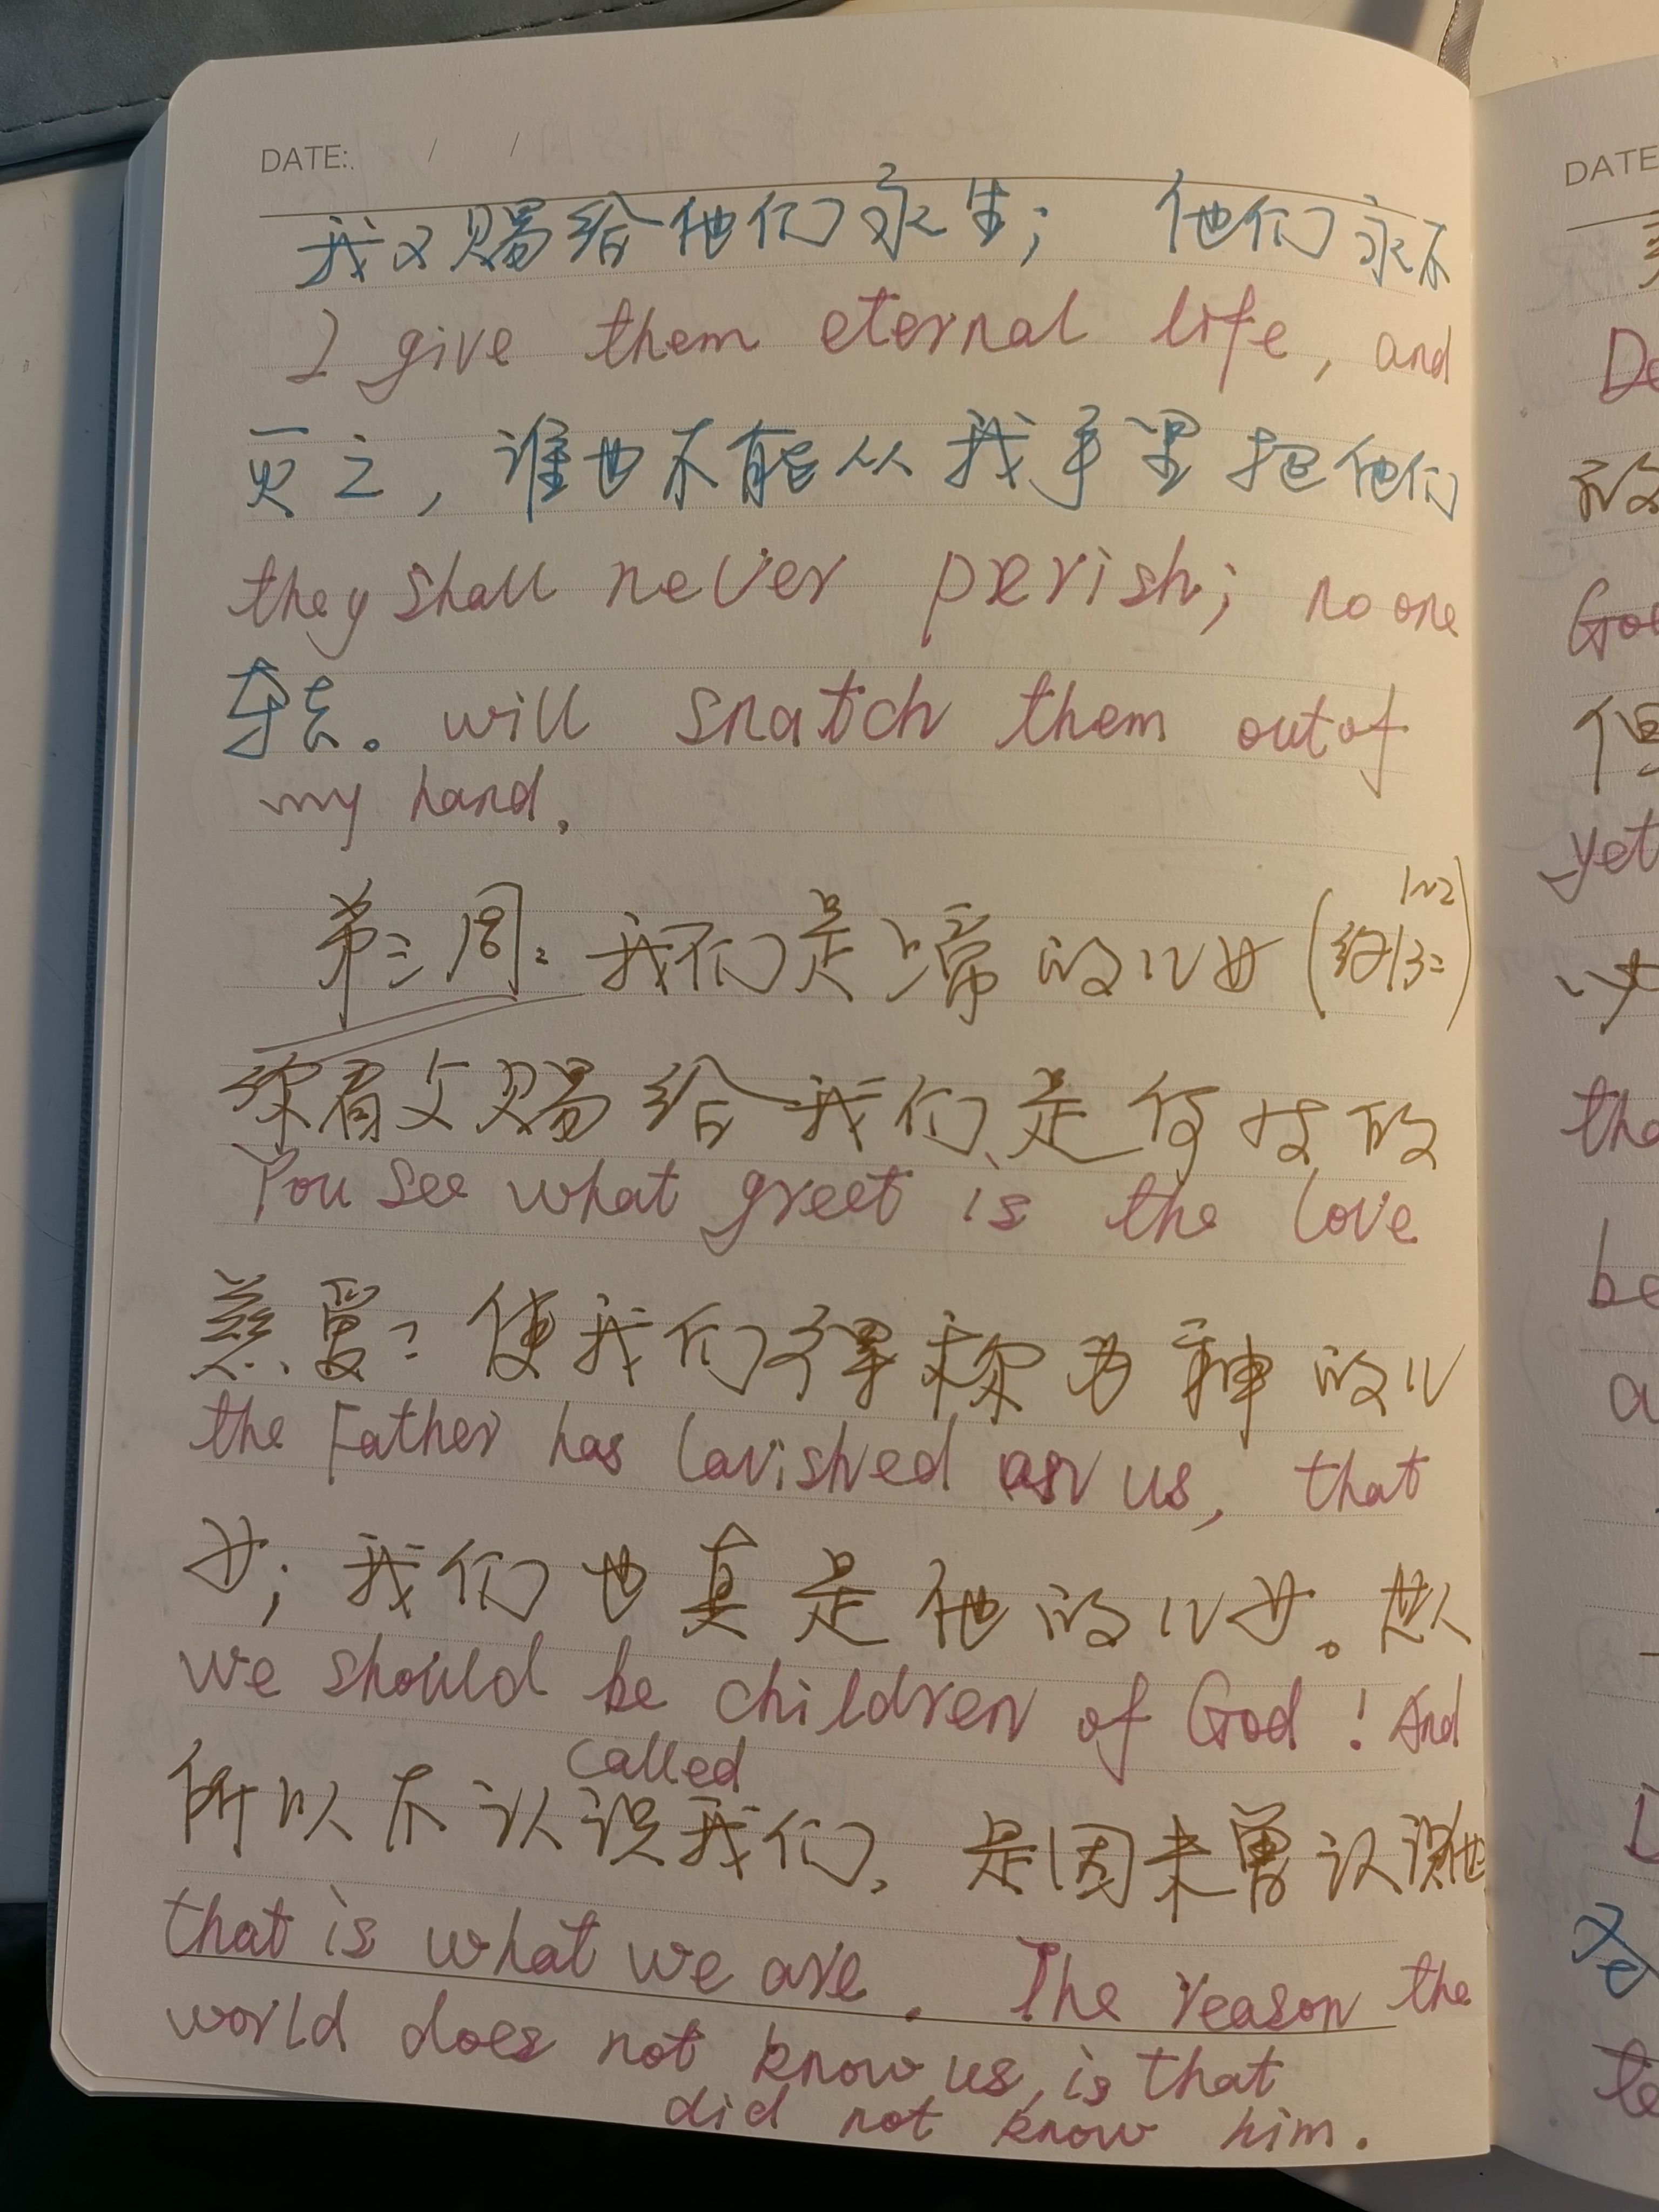 DATE: / /
我又赐给他们永生； 他们永不
I give them eternal life, and
灭亡，谁也不能从我手里把他们
they shall never perish; no one
夺去。 will snatch them out of
my hand.
第三周：我们是上帝的儿女 (约1 3: 1~2)
你看父赐给我们是何等的
You see what greet is the love
慈爱？使我们得称为神的儿
the Father has lavished on us, that
女；我们也真是他的儿女。世人
we should be children of God! And
called
所以不认识我们，是因未曾认识他
that is what we are. The reason the
world does not know us, is that
did not know him.
DATE
De
God
但
yet
tha
be
a
te